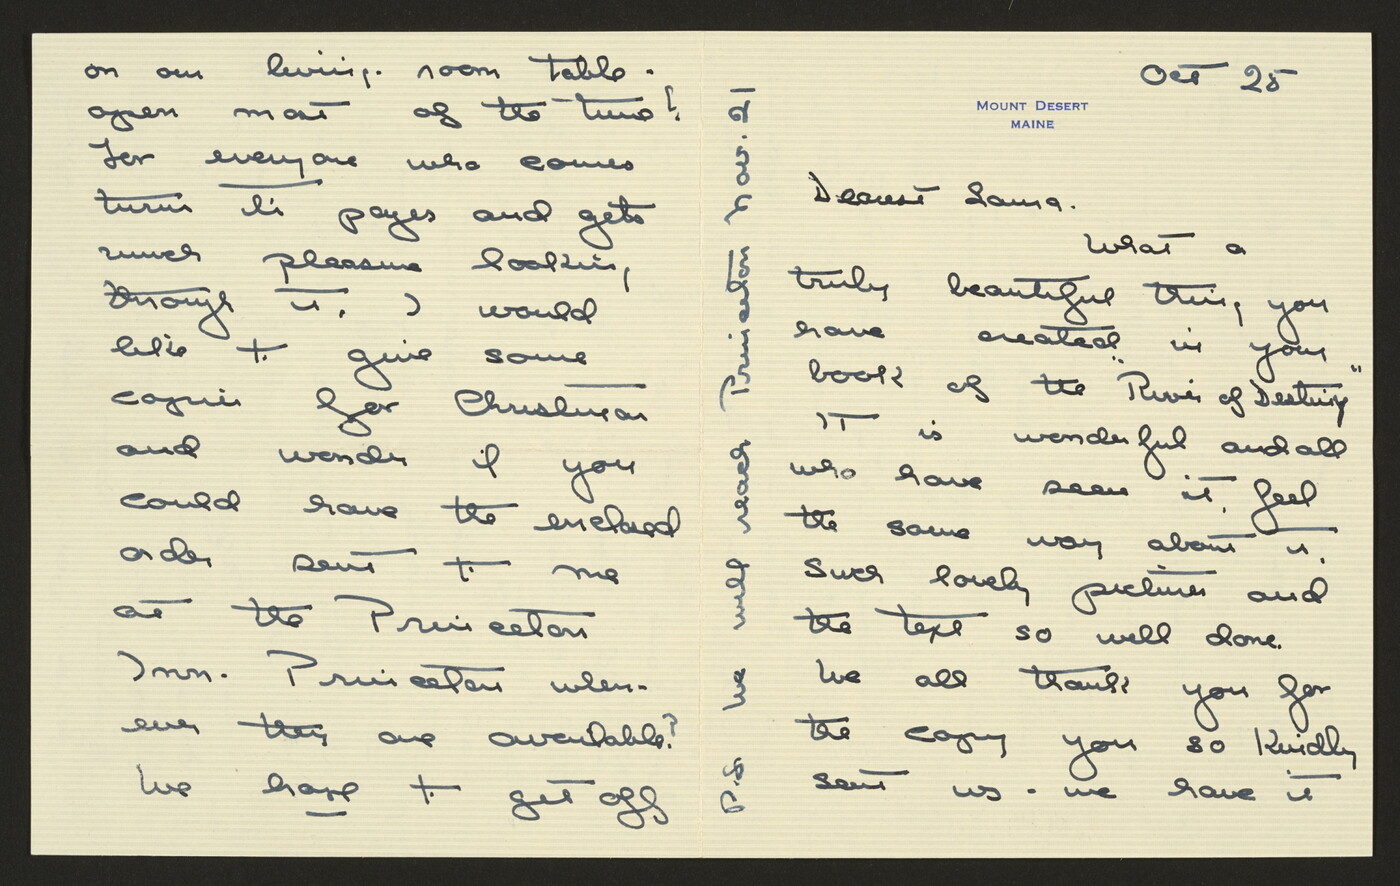 Oct 25
MOUNT DESERT
MAINE
Dearest Lama.
What a
truly beautiful thing you
have created in your
book of the "River of Destiny"
It is wonderful and all
who have seen it, feel
the same way about it.
Such lovely pictures and
the text so well done.
We all thank you for
the copy you so kindly
sent us - we have it
on our living-room table -
open most of the time!
for everyone who comes
turns its pages and gets
much pleasure looking
through it. I would
like to give some
copies for Christmas
and wonder if you
could have the enclosed
order sent to me
at the Princeton
Inn. Princeton when-
ever they are available?
We hope to get off
P.S. We will reach Princeton Nov. 21